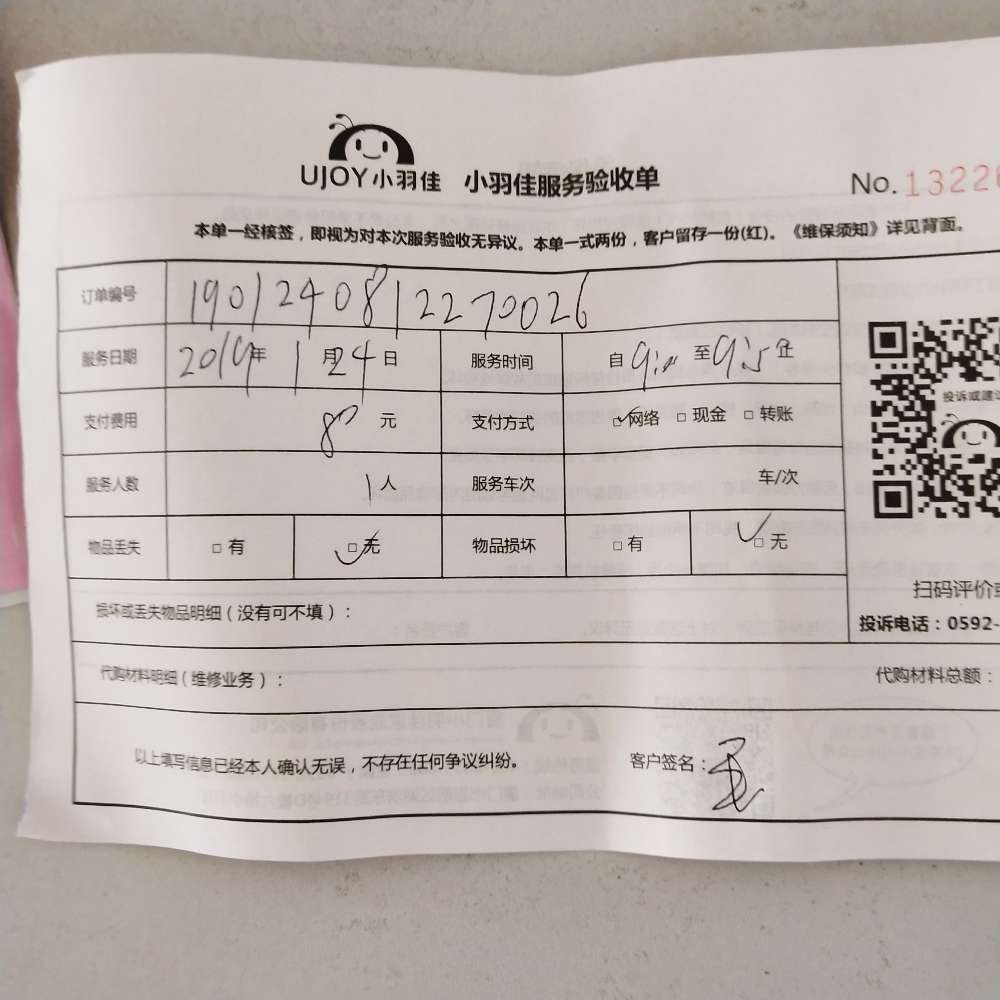 UJOY小羽佳 小羽佳服务验收单 No.13226
本单一经核签，即视为对本次服务验收无异议。本单一式两份，客户留存一份(红)。《维保须知》详见背面。
订单编号 1901240812270026
服务日期 2019年1月24日 服务时间 自 至 止
支付费用 80元 支付方式 □网络 □现金 □转账
投诉或建议
服务人数 1人 服务车次 车/次
物品丢失 □有 □无 物品损坏 □有 □无
扫码评价
损坏或丢失物品明细（没有可不填）：
投诉电话：0592-
代购材料明细（维修业务）： 代购材料总额：
以上填写信息已经本人确认无误，不存在任何争议纠纷。 客户签名：